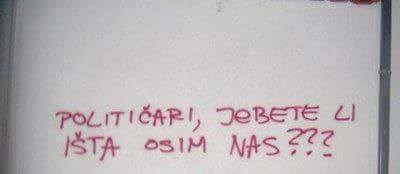 POLITIČARI, JEBETE LI
IŠTA OSIM NAS???